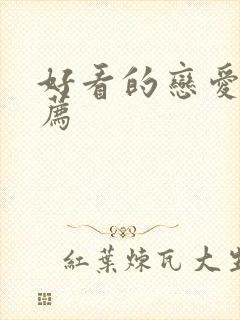 好看的戀愛
薦
紅葉煉瓦大